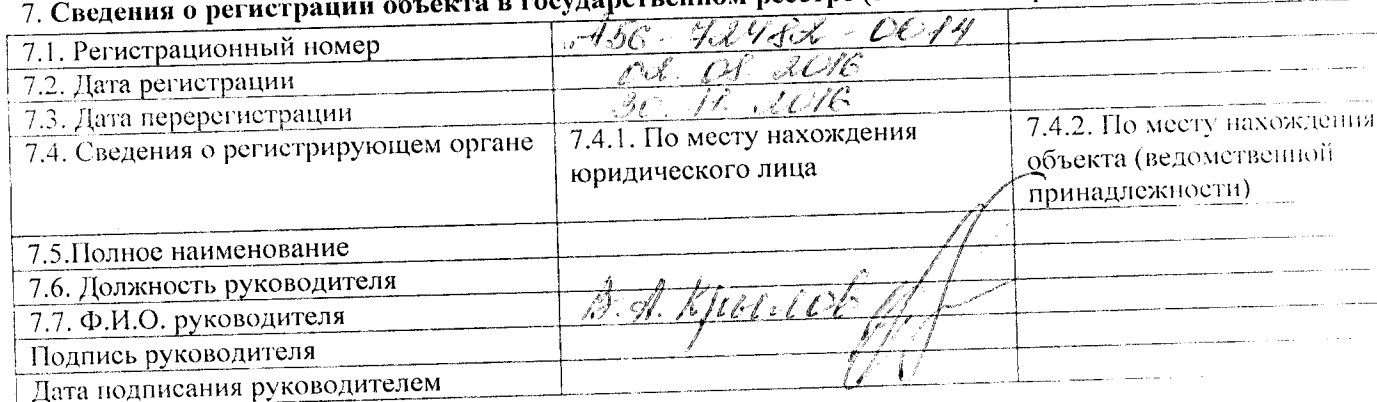 7. Сведения о регистрации объекта в государственном реестре
7.1. Регистрационный номер А56-72482-0014
7.2. Дата регистрации 02.08.2016
7.3. Дата перерегистрации 30.11.2016
7.4. Сведения о регистрирующем органе 7.4.1. По месту нахождения 7.4.2. По месту нахождения
юридического лица объекта (ведомственной
принадлежности)
7.5.Полное наименование
7.6. Должность руководителя
7.7. Ф.И.О. руководителя В.А. Крылов
Подпись руководителя
Дата подписания руководителем